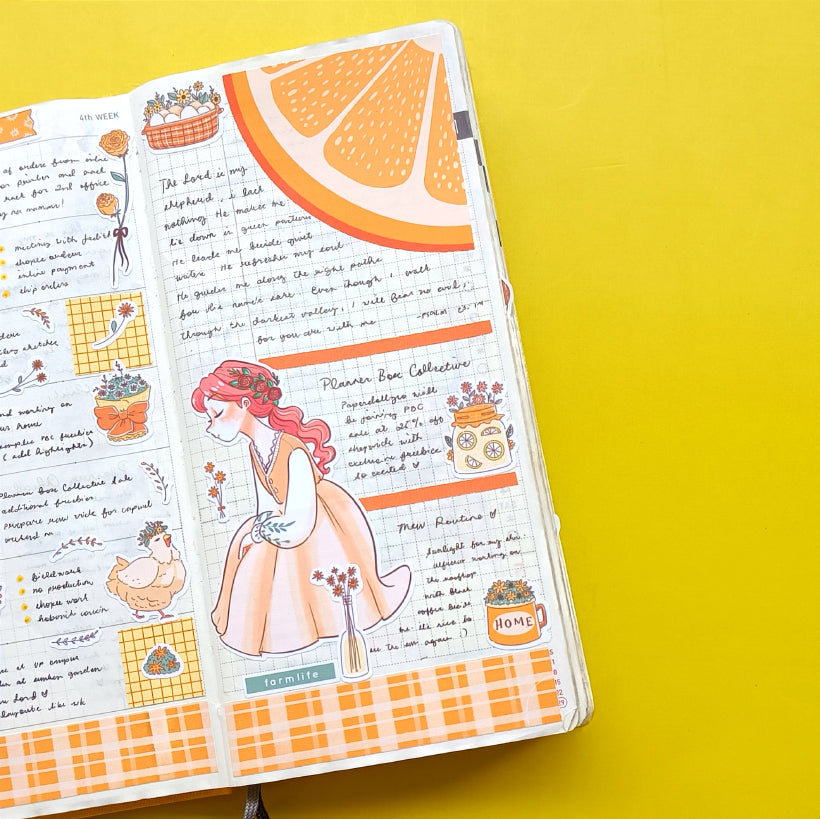 4th WEEK
of orders from online
for printer and
rack for 2nd office
meeting with
shopee orders
online payment
ship orders
sketches
and working on
our home
complete PBC freebies
( add highlights)
Planner Box Collective Sale
additional freebies
prepare raw vids for capcut
fieldwork
no production
shopee work
at UP campus
at sunken garden
Lord
layouts like uk
The Lord is my
shepherd, i lack
nothing He makes me
lie down in green pastures
He leads me beside quiet
waters He refreshes my soul
He guides me along the right paths
for His name's sake. Even though i walk
through the darkest valley, i will fear no evil,
for you are with me. -PSALM 23:1-4
Planner Box Collective
Paperdollzco will
be joining PBC
sale at 25% off
shopwide with
exclusive freebies
so excited
New Routine
sunlight for my skin.
working on
the rooftop
with black
coffee
it's nice to
see the sun again :)
HOME
farmlife